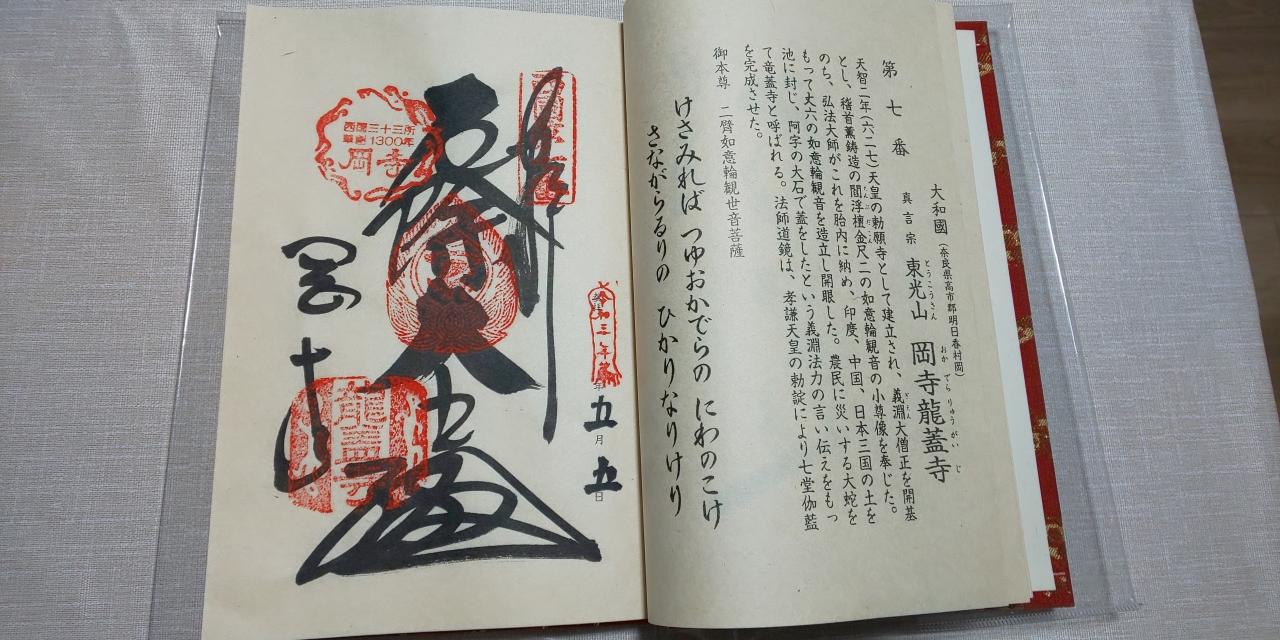 第七番
大和國(奈良県高市郡明日香村岡)
真言宗 東光山 岡寺龍蓋寺
とうこうさん おかでらりゅうがいじ
天智二年(六二七)天皇の勅願寺として建立され、義淵大僧正を開基
とし、稽首薫鋳造の閻浮檀金尺二の如意輪観音の小尊像を奉じた。
のち、弘法大師がこれを胎内に納め、印度、中国、日本三国の土を
もって丈六の如意輪観音を造立し開眼した。農民に災いする大蛇を
池に封じ、阿字の大石で蓋をしたという義淵法力の言い伝えをもっ
て竜蓋寺と呼ばれる。法師道鏡は、孝謙天皇の勅諚により七堂伽藍
を完成させた。
御本尊 二臂如意輪観世音菩薩
けさみれば つゆおかでらの にわのこけ
さながらるりの ひかりなりけり
令和三年
五月五日
西國三十三所
草創1300年
岡寺
岡寺
龍蓋寺